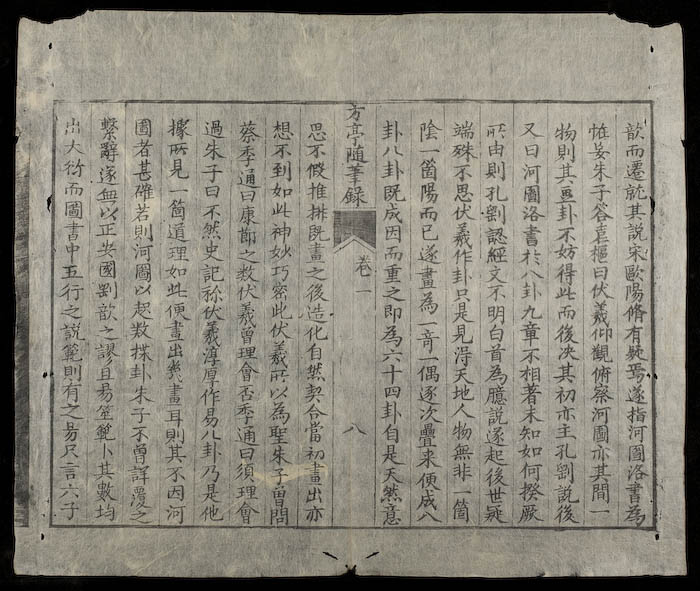 歆而遷就其說宋歐陽脩有疑焉遂指河圖洛書為
恠妄朱子答袁樞曰伏羲仰觀俯察河圖亦其間一
物則其畫卦不妨得此而後决其初亦主孔劉說後
又曰河圖洛書於八卦九章不相著未知如何揆厥
所由則孔劉認經文不明白首為臆說遂起後世疑
端殊不思伏羲作卦只是見淂天地人物無非一箇
陰一箇陽而已遂畫為一竒一偶逐次疊来便成八
卦八卦既成因而重之即為六十四卦自是天然意
方亭隨筆錄 卷一 八
思不假推排既畫之後造化自然契合當初畫出亦
想不到如此神妙巧密此伏羲所以為聖朱子曾問
蔡季通曰康節之数伏羲曾理會否季通曰須理會
過朱子曰不然史記称伏羲淳厚作易八卦乃是他
據所見一箇道理如此便畫出幾畫耳則其不因河
圖者甚確若則河圖以起数揲卦朱子不曾詳覆之
繫辭遂無以正安國劉歆之謬且易筮範卜其數均
出大衍而圖書中五行之說範則有之易只言六子